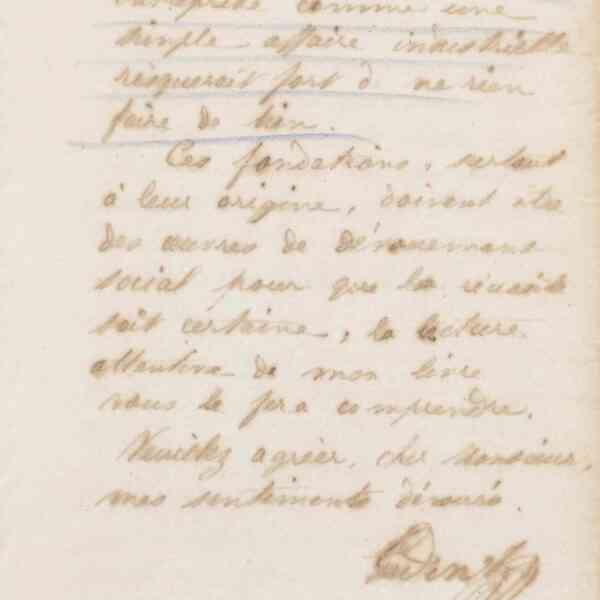 comme une
simple affaire industrielle
risquerait fort d ne rien
faire de bien.
Ces fondations, surtout
à leur origine, doivent être
des œuvres de dévouement
social pour que la réussite
soit certaine, la lecture
attentive de mon livre
vous le fera comprendre.
Veuillez agréer, cher Monsieur,
mes sentiments dévoués.